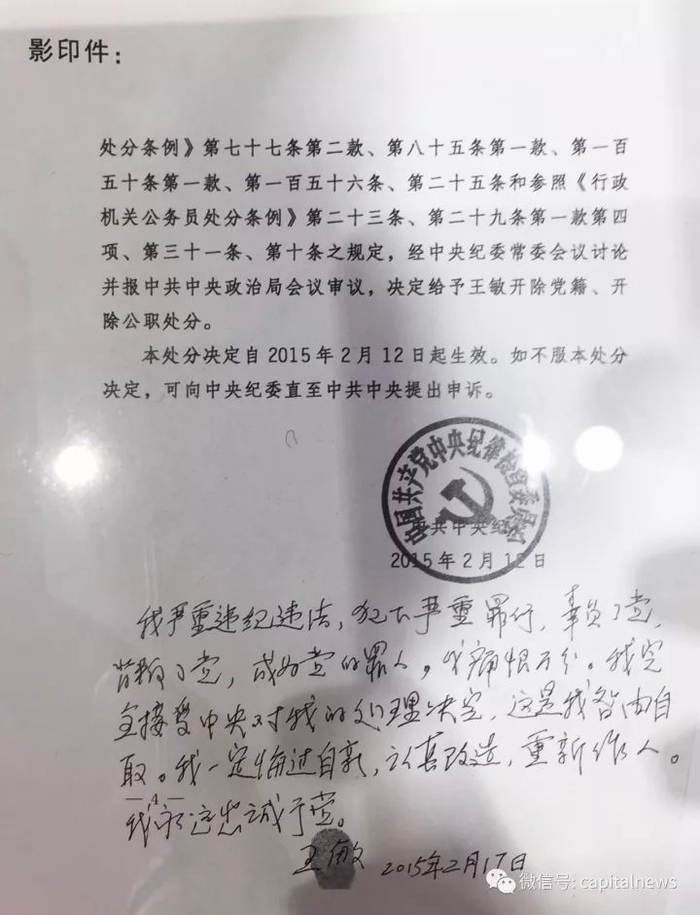 影印件：
处分条例》第七十七条第二款、第八十五条第一款、第一百
五十条第一款、第一百五十六条、第二十五条和参照《行政
机关公务员处分条例》第二十三条、第二十九条第一款第四
项、第三十一条、第十条之规定，经中央纪委常委会议讨论
并报中共中央政治局会议审议，决定给予王敏开除党籍、开
除公职处分。
本处分决定自2015年2月12日起生效。如不服本处分
决定，可向中央纪委直至中共中央提出申诉。
中国共产党中央纪律检查委员会
中共中央纪
2015年2月12日
我严重违纪违法，犯下严重罪行，辜负了党，
背叛了党，成为党的罪人，我痛恨万分。我完
全接受中央对我的处理决定，这是我咎由自
取。我一定悔过自新，认真改造，重新作人。
—4—
我永远忠诚于党。
王敏 2015年2月17日
微信号: capitalnews